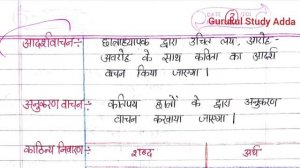 Gurukul Study Adda
आदर्शवाचन:- छात्राध्यापक द्वारा उचित लय, आरोह-
अवरोह के साथ कविता का आदर्श
वाचन किया जाएगा।
अनुकरण वाचन:- कतिपय छात्रों के द्वारा अनुकरण
वाचन करवाया जाएगा।
काठिन्य निवारण:- शब्द अर्थ